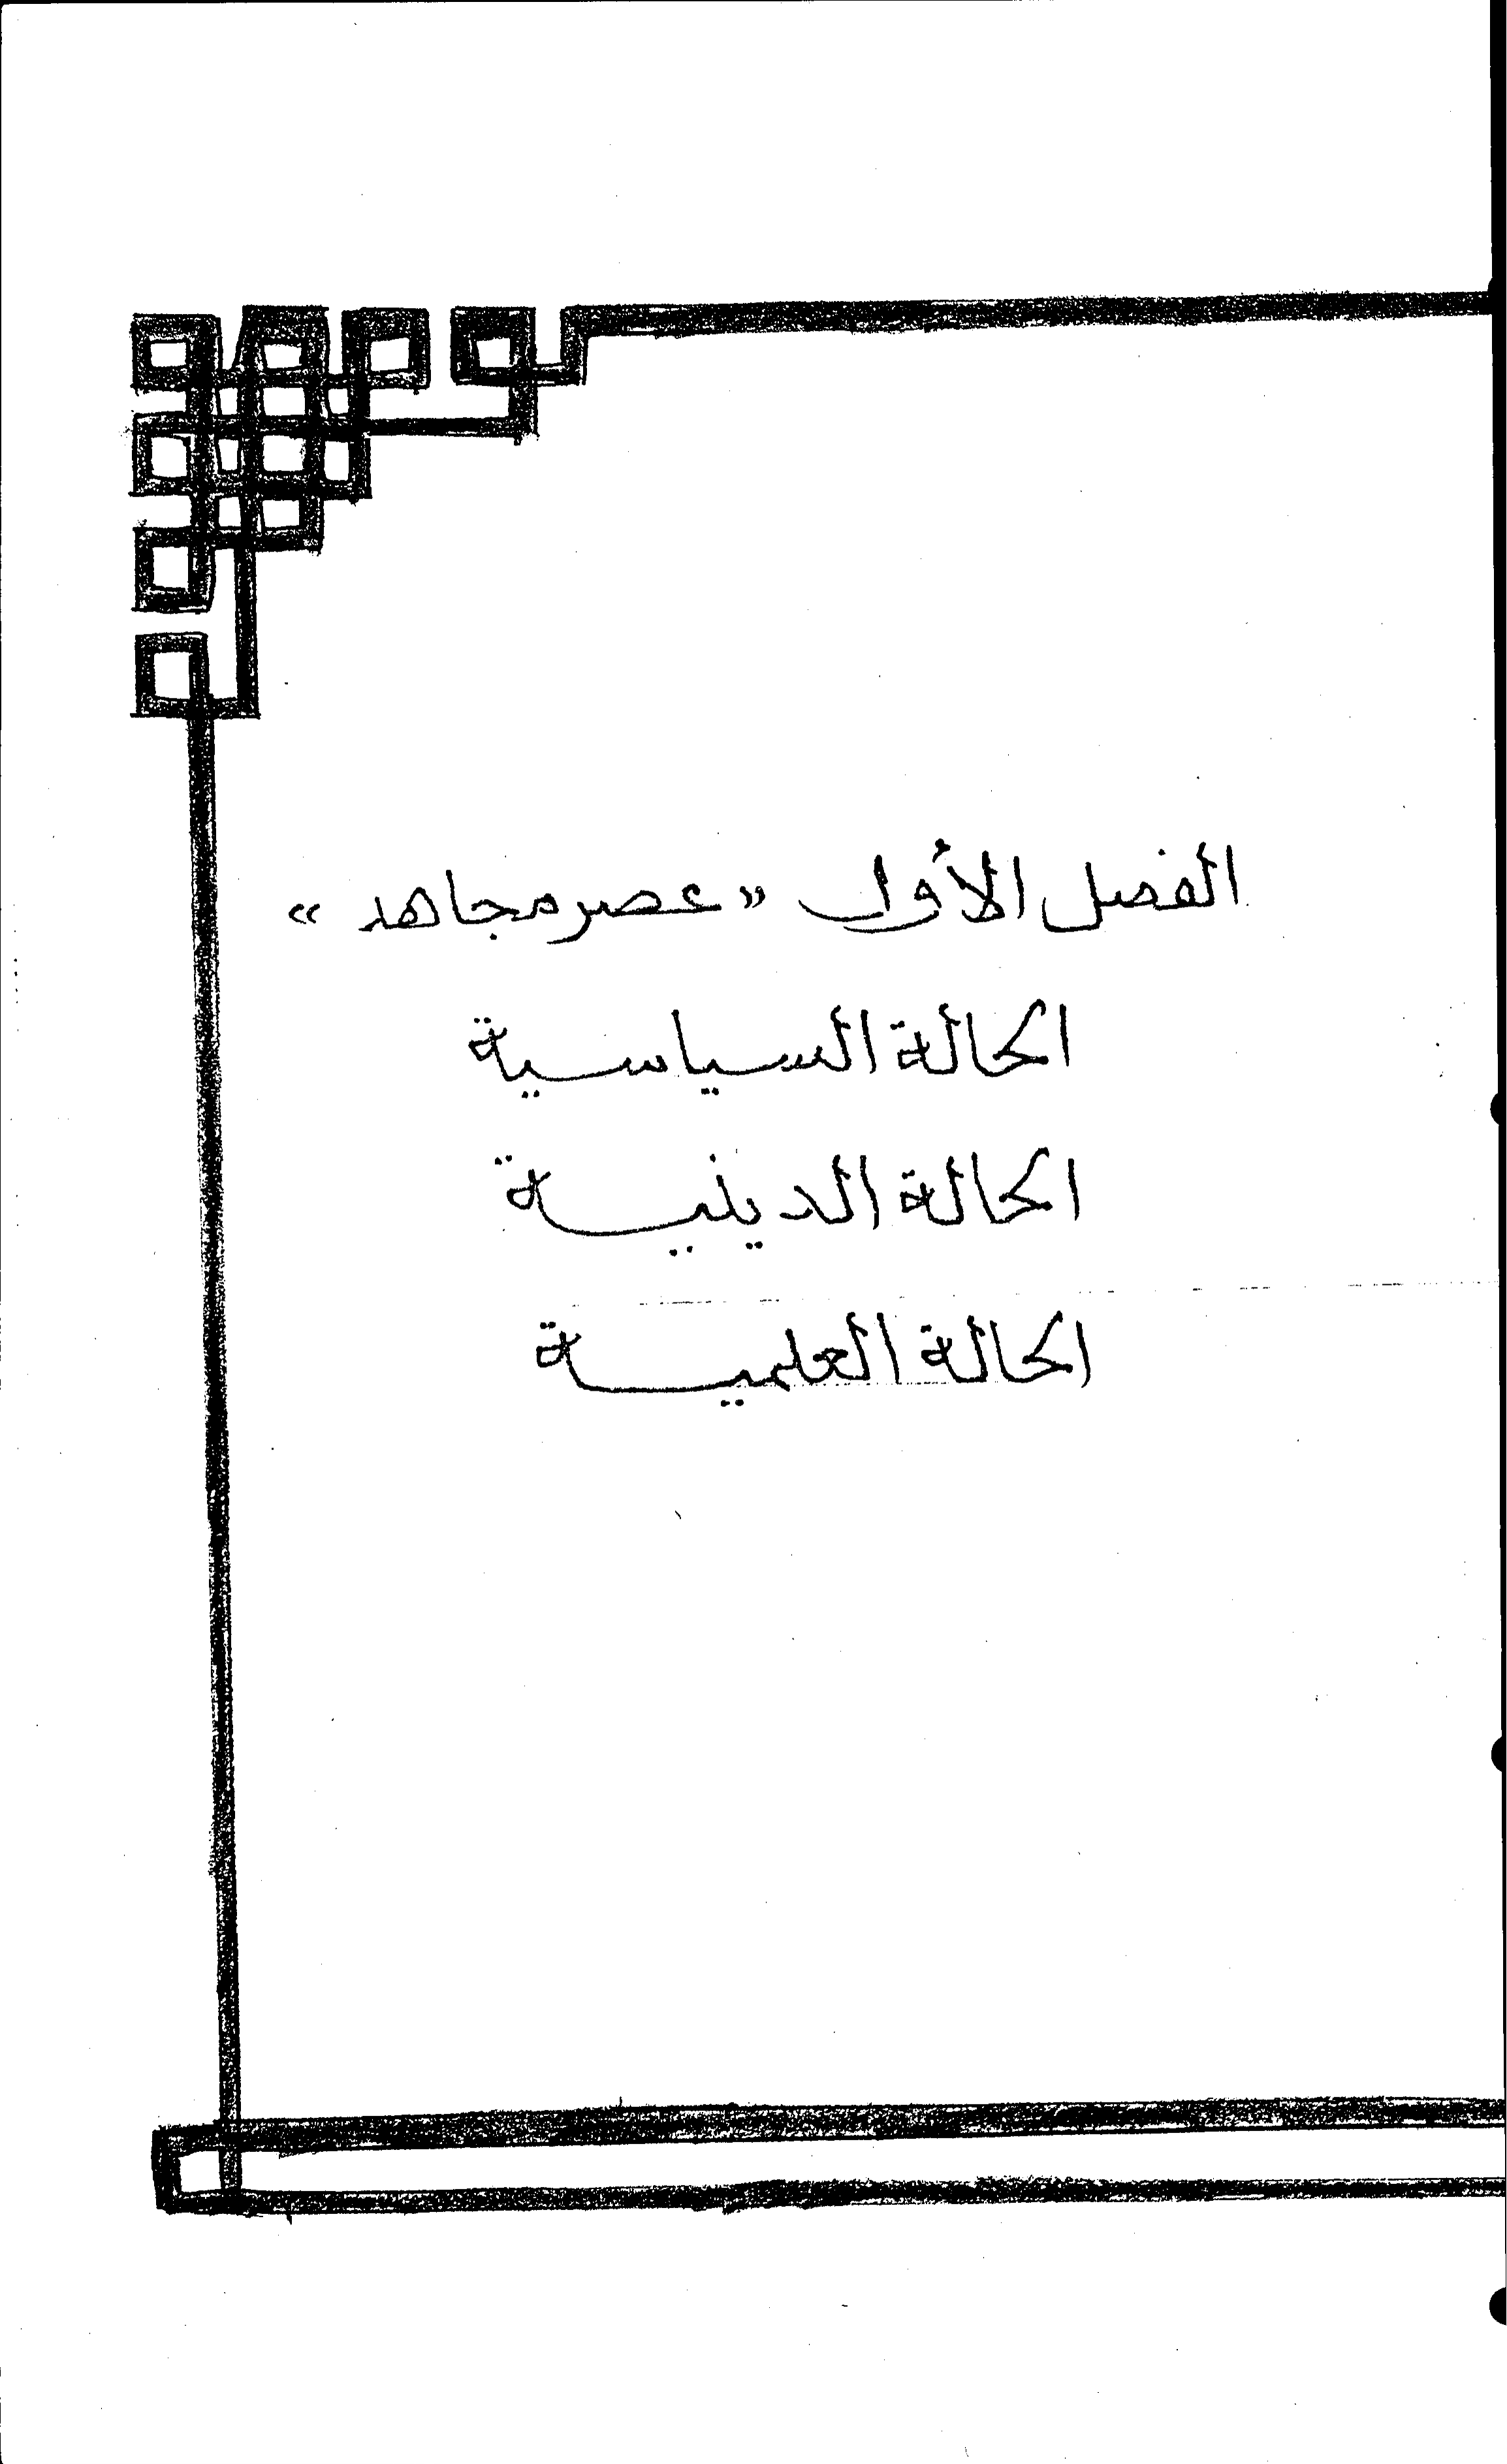 الفصل الأول «عصر مجاهد»
الحالة السياسية
الحالة الدينيــة
الحالة العلميــة